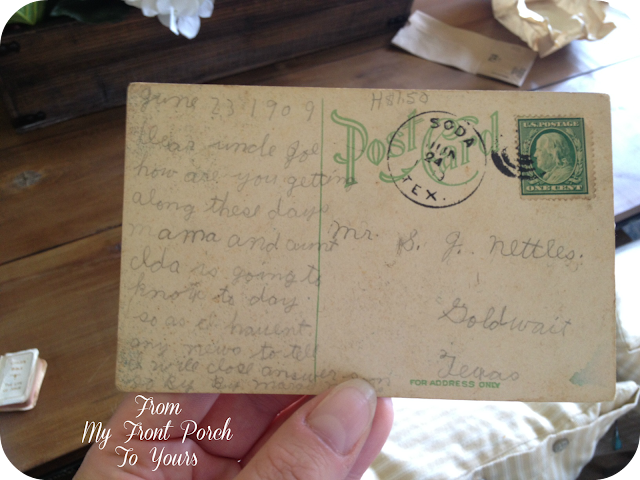 June 23 1909
Dear uncle Joe
how are you getting
along these days
mama and aunt
Ida is going to
knox to day.
so as I havent
any news to tell
I will close answer soon
by by
H81.50
Post Card
SODA
JUN
24
TEX.
U.S. POSTAGE
ONE CENT
Mr. S. J. Nettles.
Goldwait
Texas
FOR ADDRESS ONLY
From
My Front Porch
To Yours